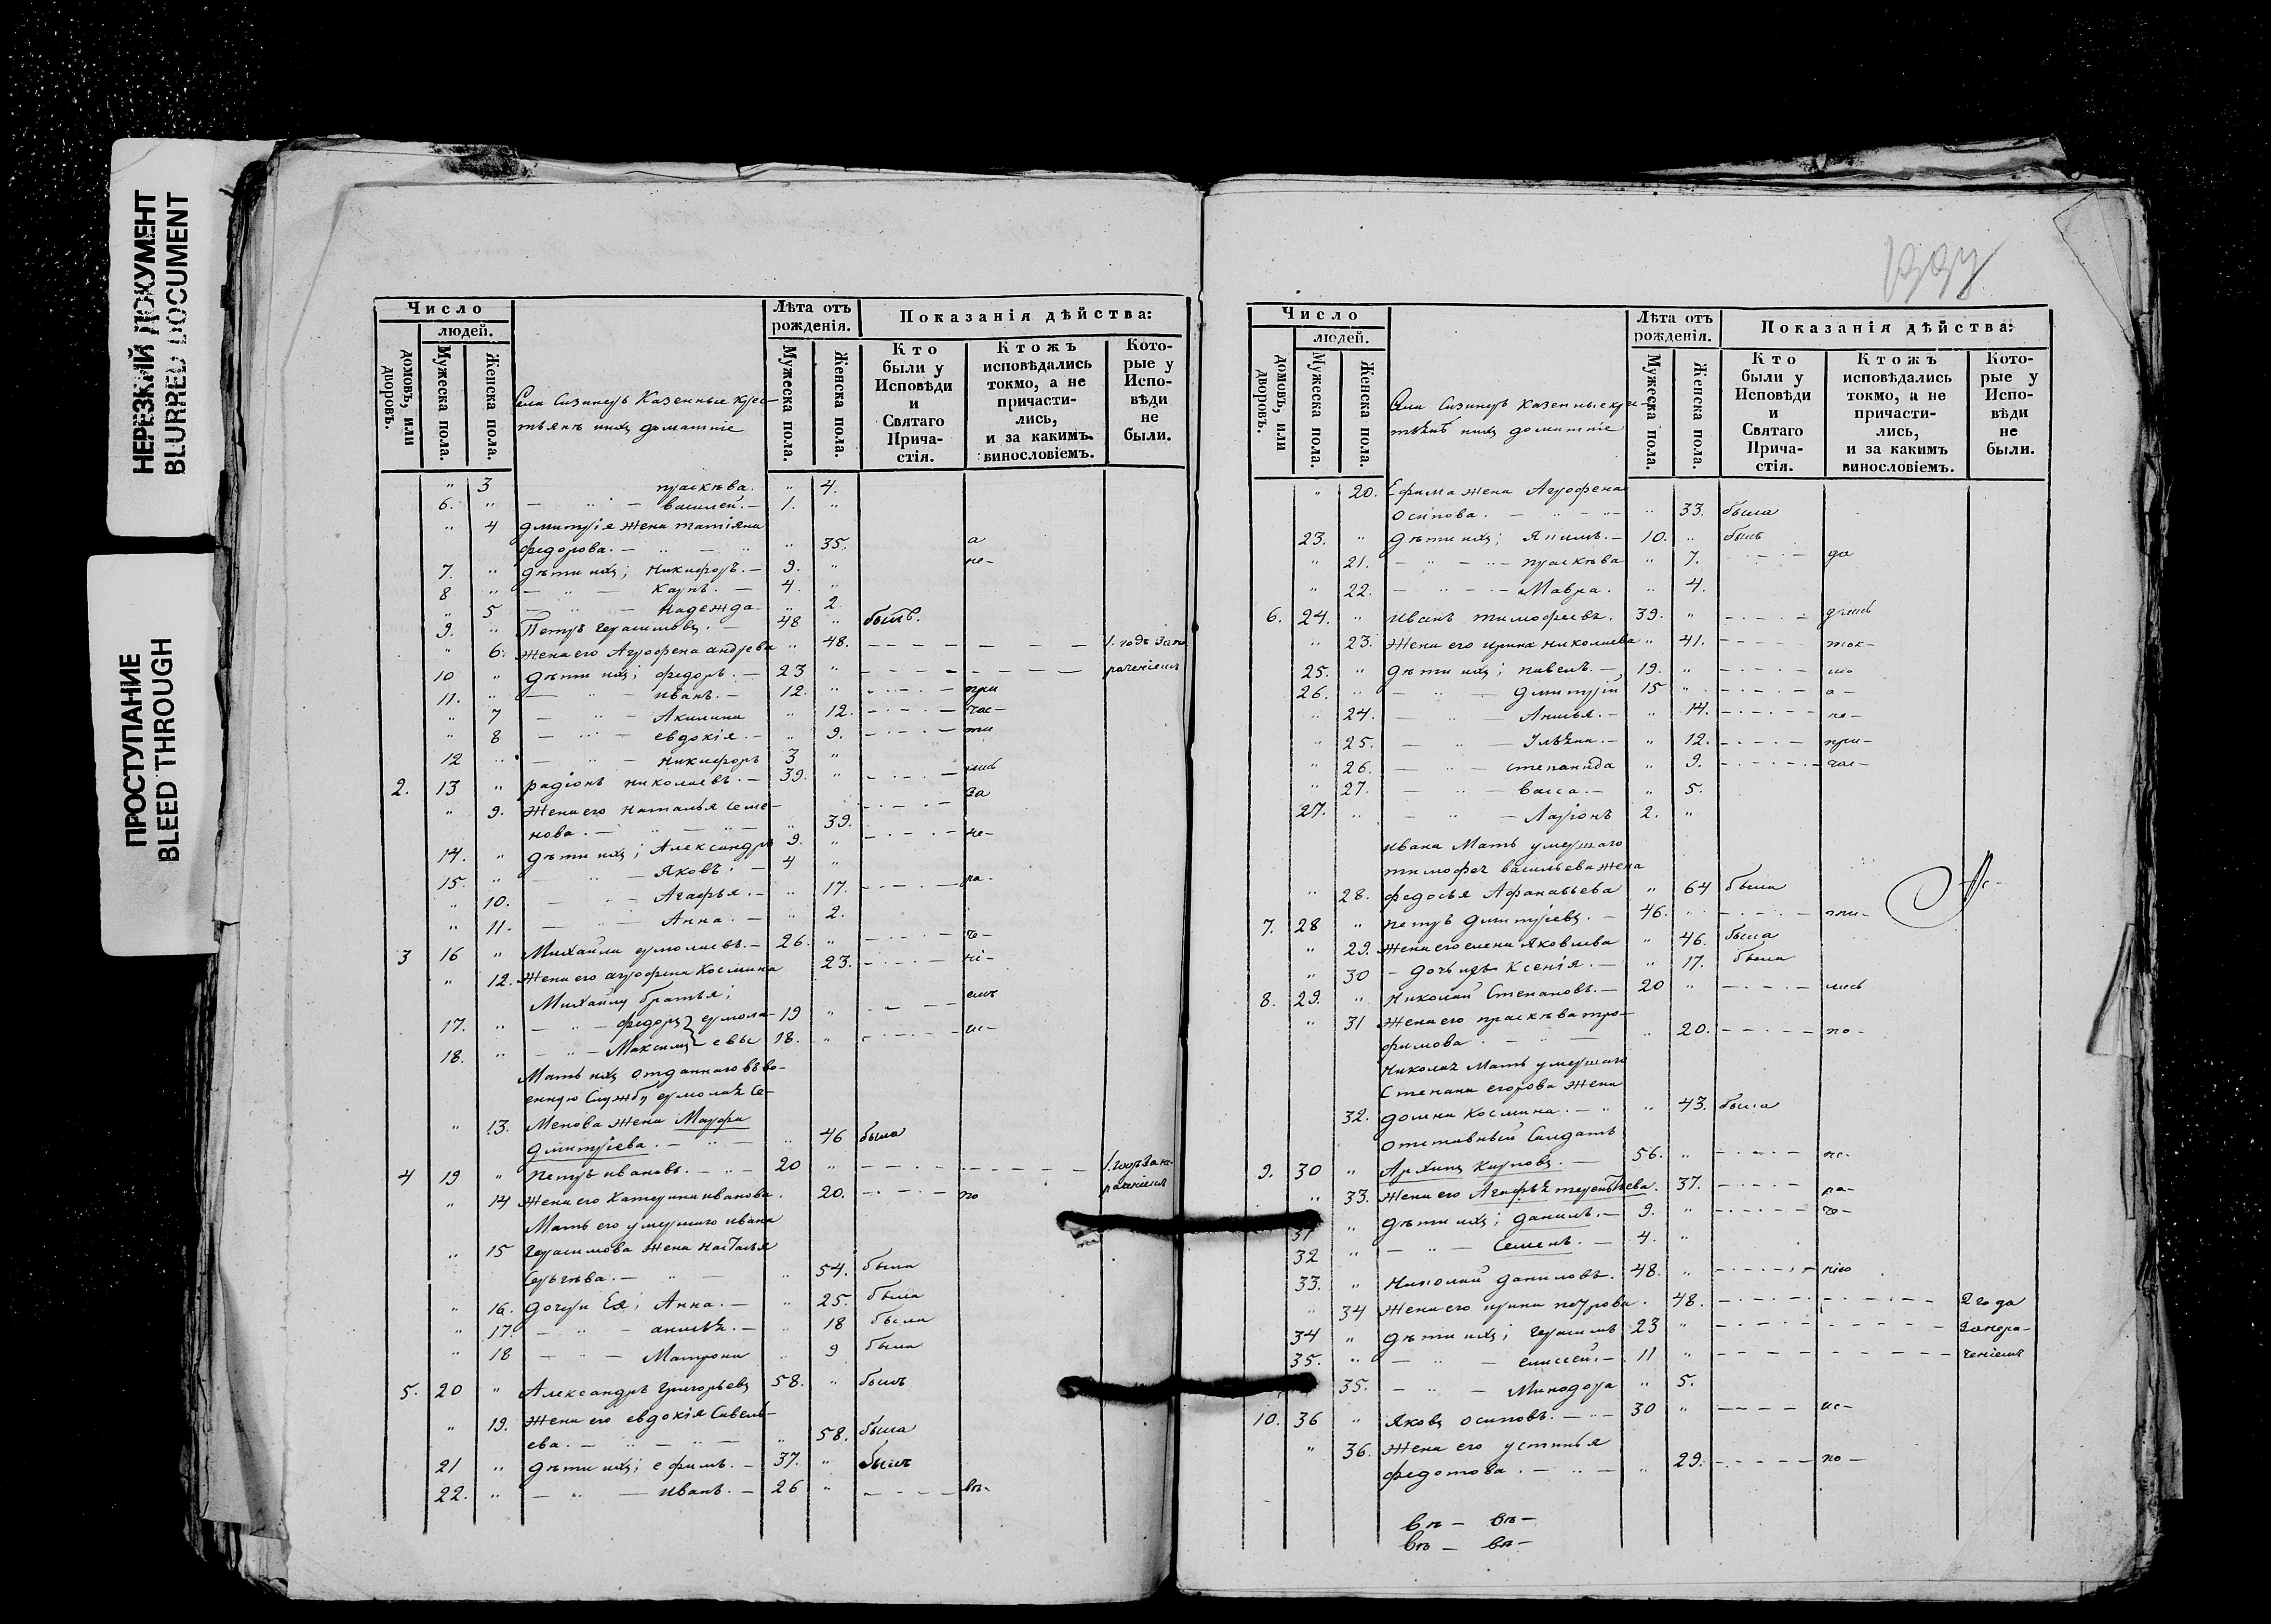 НЕРЕЗКИЙ ДОКУМЕНТ
BLURRED DOCUMENT
ПРОСТУПАНИЕ
BLEED THROUGH
Число
людей.
домовъ, или дворовъ.
Мужеска пола.
Женска пола.
Села Сизинеръ Казенные крес-
тьянъ ихъ домашніе
Лѣта отъ рожденія.
Мужеска пола.
Женска пола.
Показанія дѣйства:
Кто были у Исповѣди и Святаго Прича-стія.
Ктожъ исповѣдались токмо, а не причасти-лись, и за какимъ винословіемъ.
Кото-рые у Испо-вѣди не были.
" 3 праскѣва. " 4.
6. " — " — василей. — 1. "
" 4 дмитрія жена татіяна
федорова. — " — " " 35. а
7. " дѣти ихъ; никифоръ. — 9. " не-
8 " — " — Карпъ. — 4. "
" 5 — " — надежда — " 2.
9. " Петръ герасимовъ. — 48 " былъ.
" 6. жена его Агрофена андрева " 48. 1. годъ за не
10 " дѣти ихъ; федоръ. — 23 " раченіемъ
11. " — " — иванъ. — 12. " при
" 7 — " — Акилина " 12. час-
" 8 — " — евдокія. — " 9. ти
12 " — " — никифоръ 3 "
2. 13 " радіонъ николаевъ. — 39. " лись
" 9. Жена его наталья семе- за
нова. — " — " — " 39.
14. " дѣти ихъ; Александръ 9. " не-
15. " — " — Яковъ. — 4 "
" 10. — " — Агафья. — " 17. ра-
" 11. — " — Анна. — " 2.
3 16 " Михайла ермолаевъ. — 26. " че-
" 12. Жена его агрофена Космина 23. ні-
Михайлу братья; емъ
17. " — " — федоръ } ермола- 19 "
18. " — " — Максимъ } евы 18. " ис-
Мать ихъ отданнаго въ во-
енную Службу ермолая Се-
" 13. Менова жена Марфа
дмитріева. — " — " 46 была
4 19 " петръ ивановъ. — " — 20 " 1. годъ за не-
раченіемъ
" 14 Жена его Катерина иванова. 20. по
Мать его умершаго ивана
" 15 герасимова жена настасья
Сергѣва. — " — " 54. была
" 16. дочери Ея; Анна. — " 25. была
" 17. — " — анисья. — " 18 была
" 18 — " — Матрона " 9 была
5. 20 " Александръ григорьевъ 58. " былъ
" 19. Жена его евдокія Савель-
ева. — " — " — " 58. была
21 " дѣти ихъ; ефимъ. — 37. " былъ
22. " — " — иванъ. — 26 " въ-
Число
людей.
домовъ, или дворовъ.
Мужеска пола.
Женска пола.
Села Сизинеръ казенные кре-
стьянъ ихъ домашніе
Лѣта отъ рожденія.
Мужеска пола.
Женска пола.
Показанія дѣйства:
Кто были у Исповѣди и Святаго Прича-стія.
Ктожъ исповѣдались токмо, а не причасти-лись, и за какимъ винословіемъ.
Кото-рые у Испо-вѣди не были.
" 20. Ефима жена Агрофена
осипова. — " — " — " 33. была
23. " дѣти ихъ; Якимъ. — 10. " былъ
" 21. — " — праскѣва " 7. да
" 22. — " — Мавра. " 4.
6. 24. " иванъ тимофеевъ. 39. "
" 23. Жена его ирина николаева " 41. ток-
25. " дѣти ихъ; павелъ. — 19. " мо
26. " — " — дмитрій 15 " а-
" 24. — " — Анисья. — " 14. не-
" 25. — " — Ульяна. — " 12. при-
" 26. — " — степанида " 9. час-
" 27. — " — васса. — " 5.
27. " — " — Ларіонъ 2. "
ивана Мать умершаго
тимофея васильева жена
" 28. федосья Афанасьева " 64 была
7. 28 " петръ дмитріевъ. — 46. " ти-
" 29. жена его елена Яковлева " 46. была
" 30 — дочь ихъ Ксенія. — " 17. была
8. 29. " николай Степановъ. — 20 " лись
" 31 Жена его праскѣва тро-
фимова. — " — " 20. по-
николая Мать умершаго
Степана егорова Жена
32. домна космина. — " " 43. была
отставный Салдатъ
9. 30 " Архипъ Карповъ. — 56. " не-
" 33. Жена его Агафья терентьева. 37. ра-
31 " дѣти ихъ; данилъ. — 9. " че-
32 " — " — Семенъ. — 4. "
33. " николай даниловъ. 48. " нію
" 34 Жена его ирина петрова. 48. 2 года
34 " дѣти ихъ; герасимъ 23 " за нера-
35. " — " — елисей. — 11 " ченіемъ
35. — " — Минодора " 5.
10. 36 " Яковъ осиповъ. — " — 30 " ис-
" 36. Жена его устинья
федотова. — " — " 29. по-
въ — въ —
въ — въ —